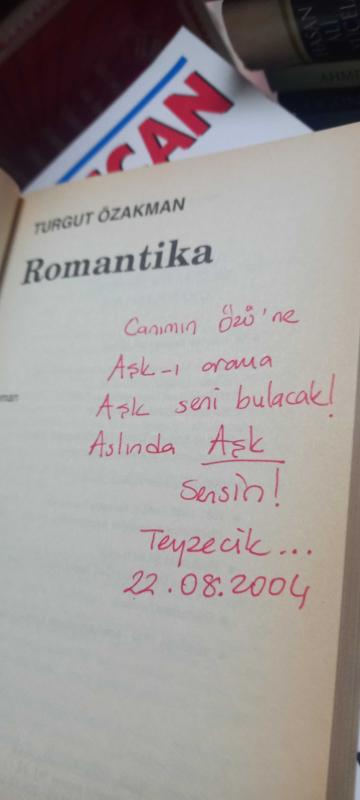 CAN
TURGUT ÖZAKMAN
Romantika
Canımın Özü'ne
Aşk-ı arama
Aşk seni bulacak!
Aslında Aşk
Sensin!
Teyzecik...
22.08.2004